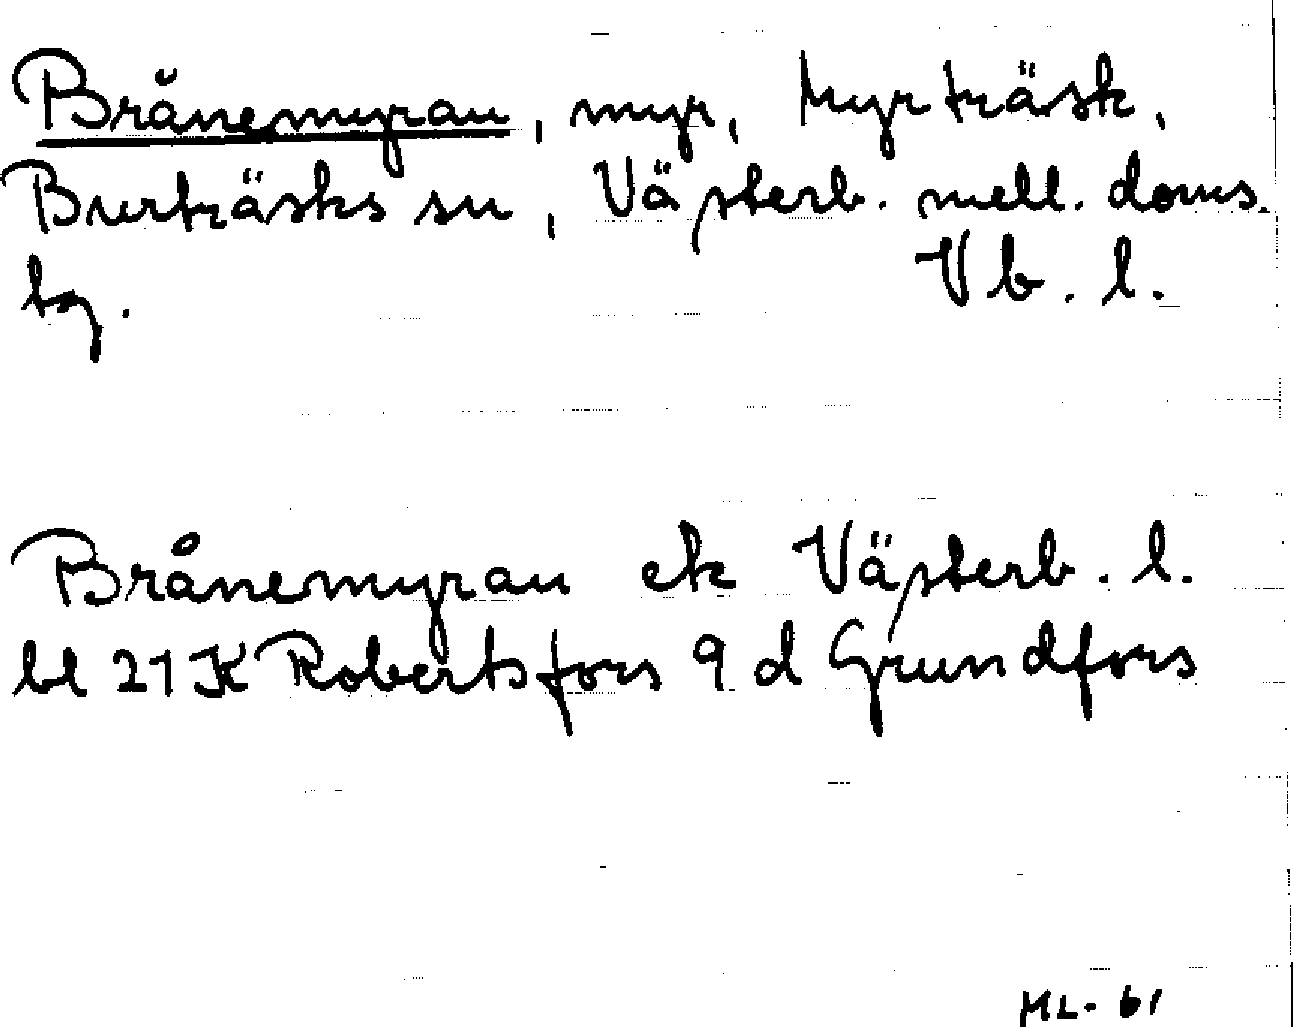 Brånemyran, myr, Myrträsk,
Burträsks sn, Västerb. mell. doms.
bg. Vb. l.
Brånemyran ek Västerb. l.
bl 21K Robertsfors 9 d Grundfors
ML-61